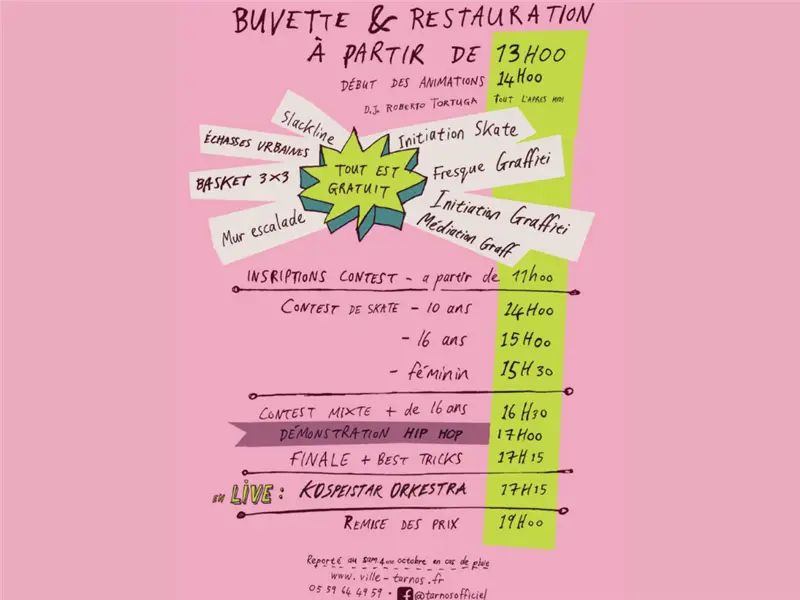 BUVETTE & RESTAURATION
À PARTIR DE 13H00
DÉBUT DES ANIMATIONS 14H00
D.J. ROBERTO TORTUGA TOUT L'APRES MIDI
Slackline
ÉCHASSES URBAINES
BASKET 3X3
Mur escalade
TOUT EST
GRATUIT
Initiation Skate
Fresque Graffiti
Initiation Graffiti
Médiation Graff
INSRIPTIONS CONTEST - a partir de 11h00
CONTEST DE SKATE - 10 ans 14H00
- 16 ans 15H00
- féminin 15H30
CONTEST MIXTE + de 16 ans 16H30
DÉMONSTRATION HIP HOP 17H00
FINALE + BEST TRICKS 17H15
EN LIVE : KOSPEISTAR ORKESTRA 17H15
REMISE DES PRIX 19H00
Reporté au sam 4 octobre en cas de pluie
www.ville-tarnos.fr
05 59 64 49 59 • f @tarnosofficiel